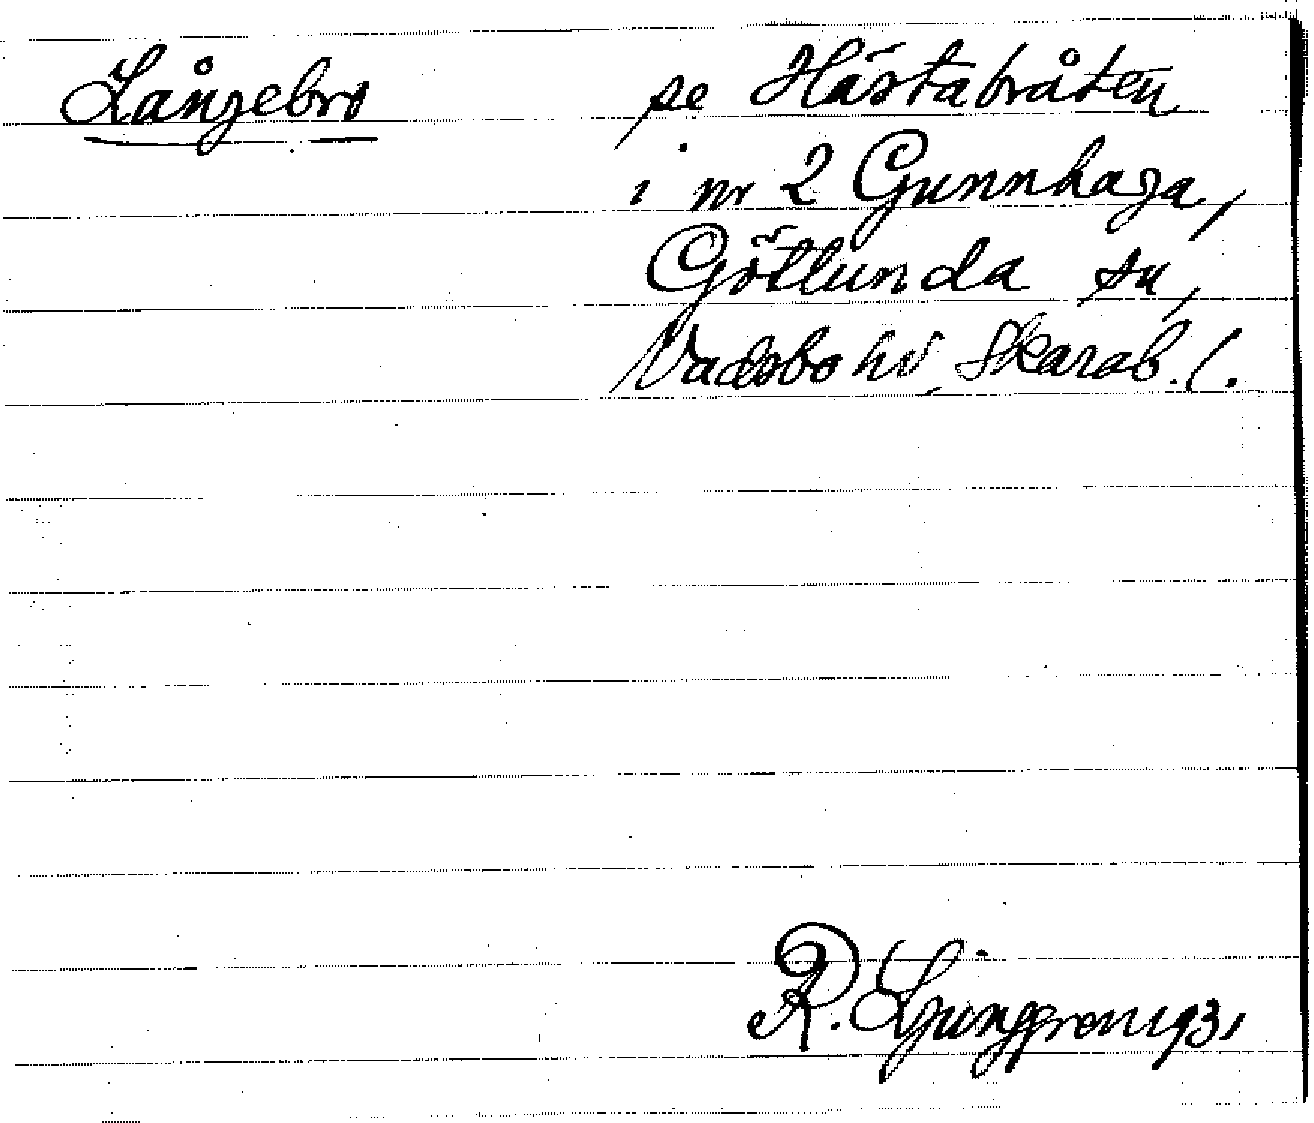 Långebro
se Hästabråten
i nr 2 Gunnhaga,
Götlunda sn,
Vadsbo hd, Skarab. l.
R. Ljunggren 1931